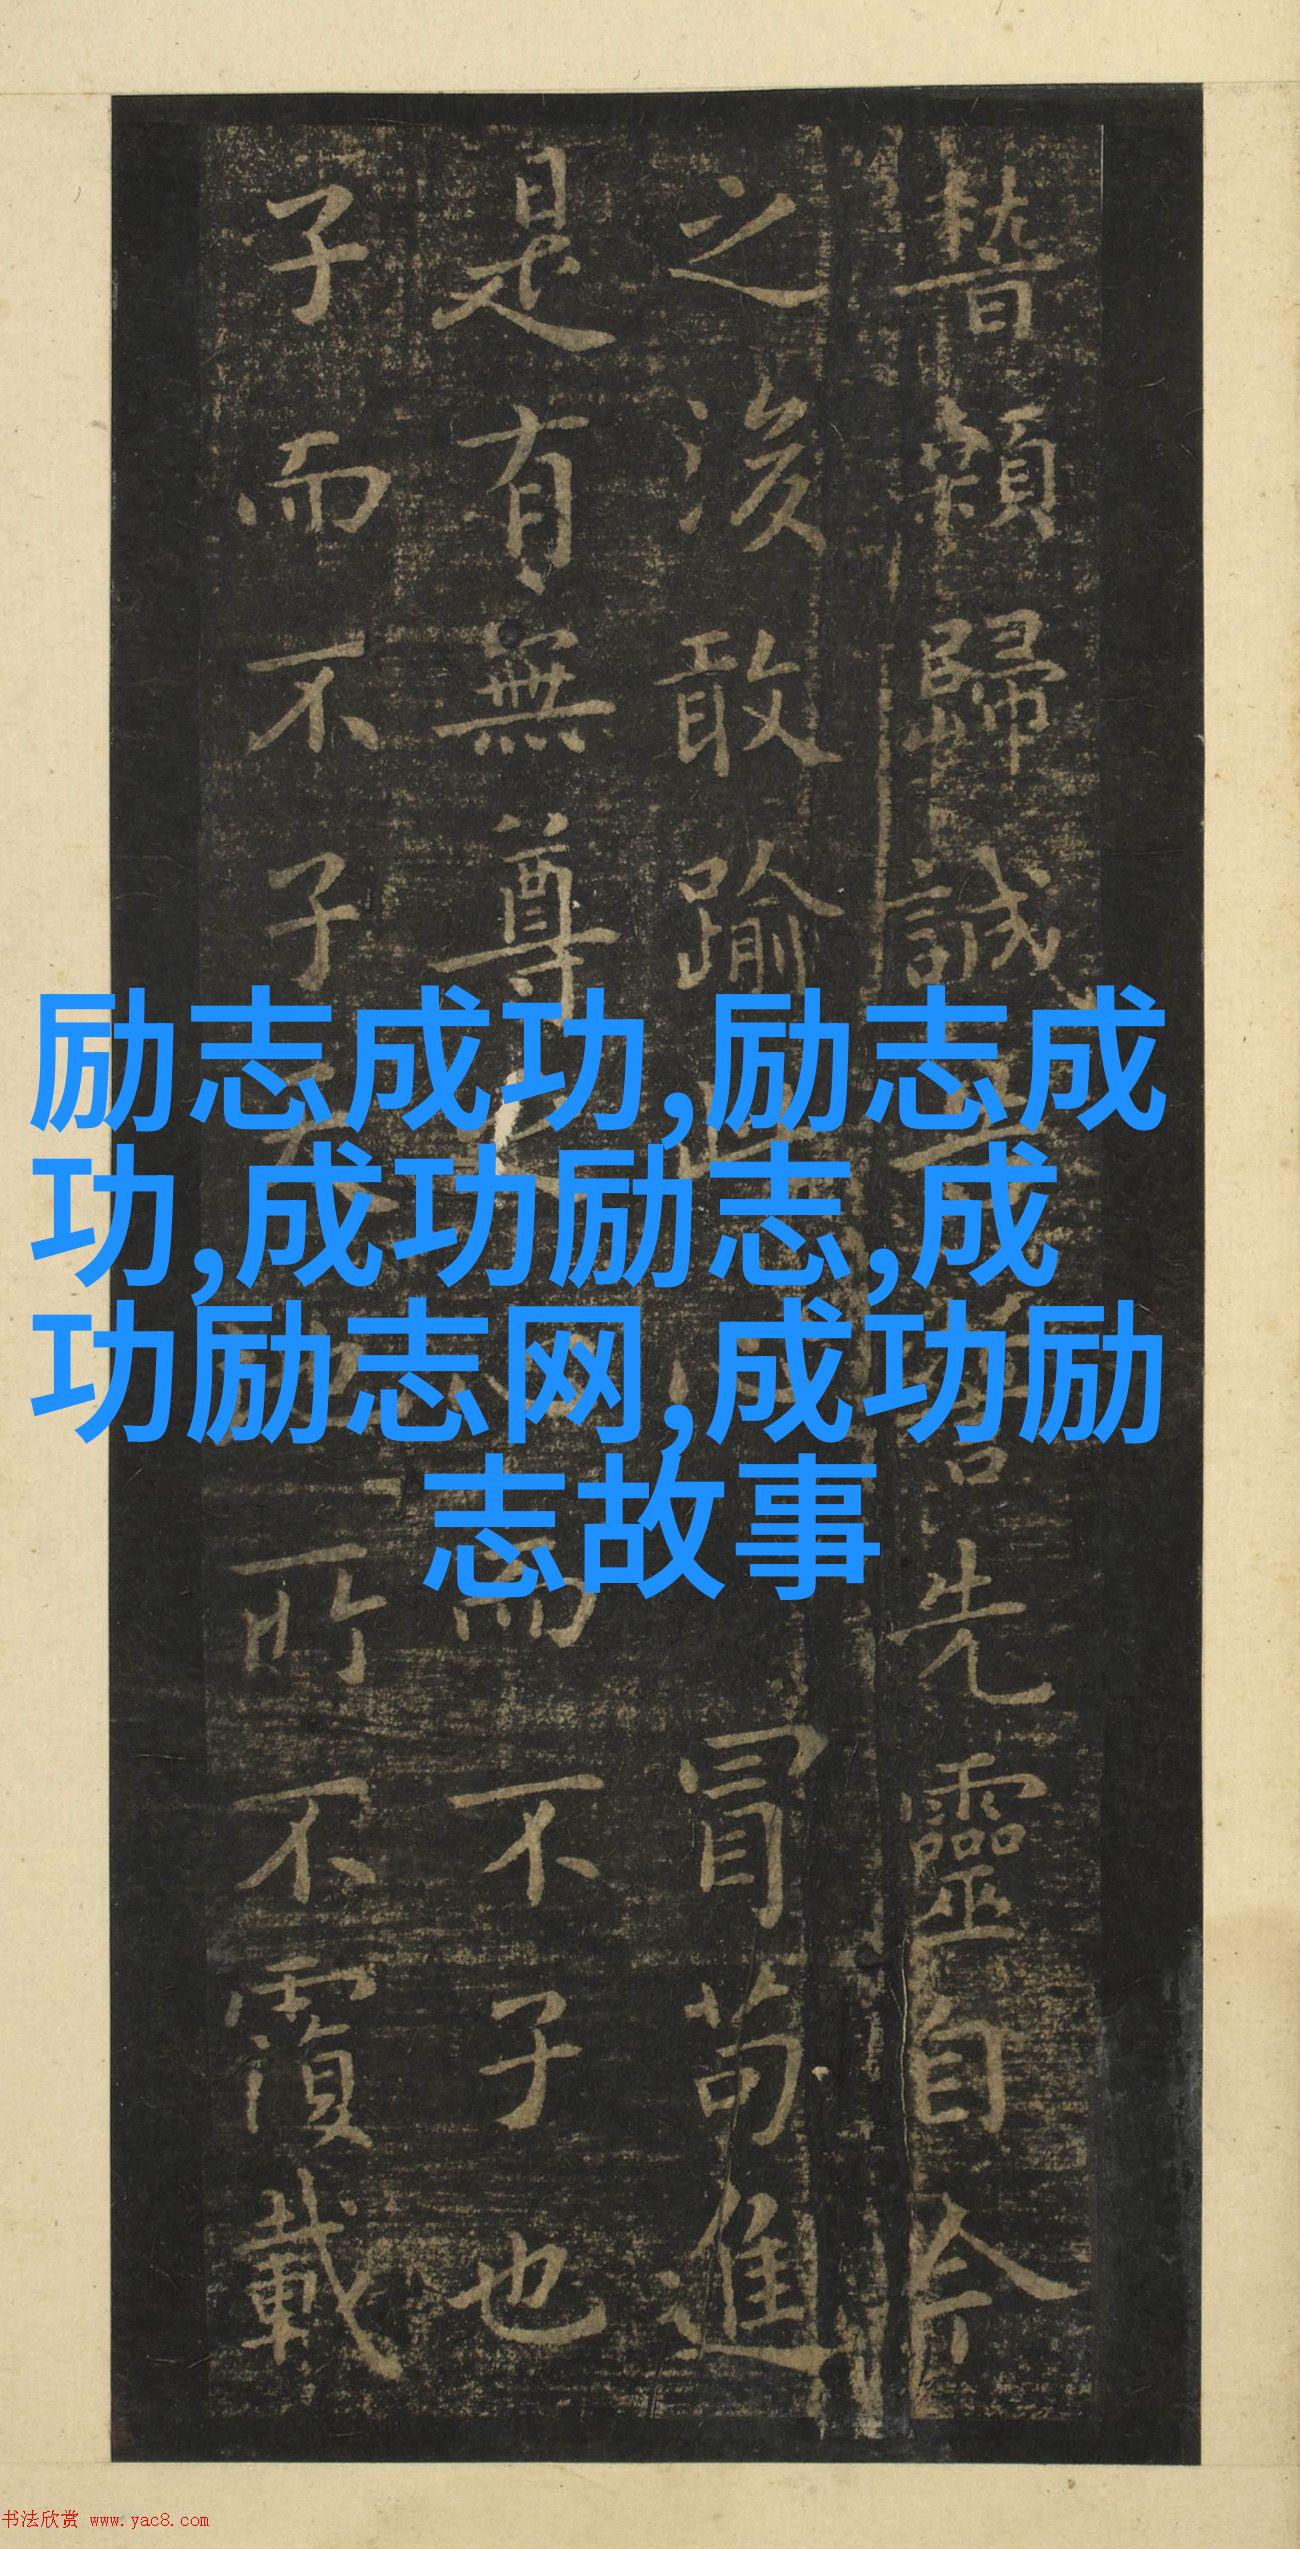 顙歸誠先靈自今
之後敢踰冒苟進
是有無尊而不子也
子而不子所不覆載
励志成功,励志成
功,成功励志,成
功励志网,成功励
志故事
书法欣赏 www.yac8.com